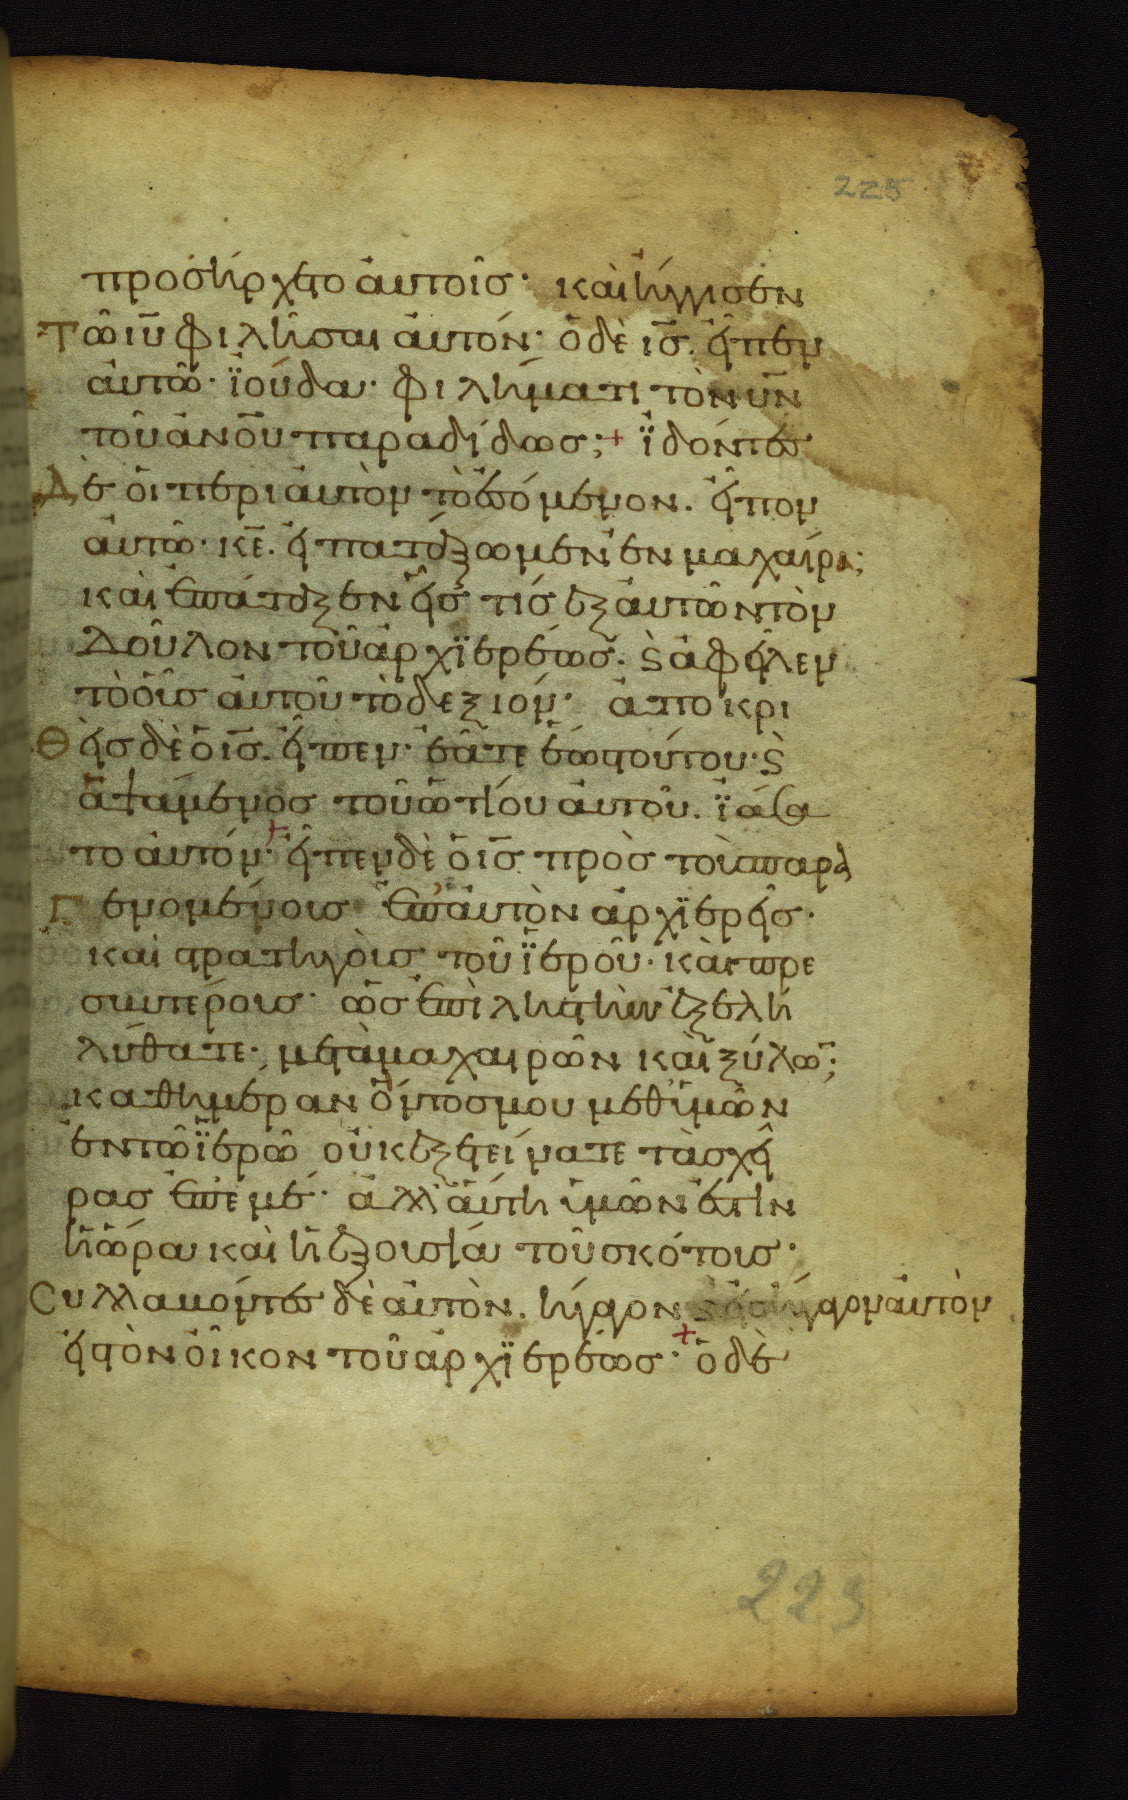 225
προσήρχετο αὐτοῖς· καὶ ἤγγισεν
τῶ ιῡ φιλῆσαι αὐτόν· ὁ δὲ ις̄. εἶπεν
αὐτῶ· ἰούδα· φιλήματι τὸν ῡν
τοῦ ἀνο̄υ παραδίδως; + ἰδόντες
δὲ οἱ περὶ αὐτὸν τὸ ἐσόμενον. εἶπον
αὐτῶ· κε̄. εἰ πατάξωμεν ἐν μαχαίρα;
καὶ ἐπάταξεν εἷς τίς ἐξ αὐτῶν τὸν
δοῦλον τοῦ ἀρχϊερέως. ϛ̀ ἀφεῖλεν
τὸ οὖς αὐτοῦ τὸ δεξιόν· ἀποκρι
θεὶς δὲ ὁ ις̄. εἶπεν· ἐᾶτε ἕως τούτου· ϛ̀
ἁψάμενος τοῦ ὠτίου αὐτοῦ. ϊάσα
το αὐτόν· + εἶπεν δὲ ὁ ις̄ πρὸς τοὺς παρα
γενομένους ἐπ' αὐτὸν ἀρχϊερεῖς·
καὶ στρατηγοὺς τοῦ ϊεροῦ· καὶ πρε
σβυτέρους· ὡς ἐπὶ ληστὴν ἐξελη
λύθατε· μετὰ μαχαιρῶν καὶ ξύλω̄;
καθημέραν ὄντος μου μεθ' ὑμῶν
ἐν τῶ ϊερῶ οὐκ ἐξετείνατε τὰς χεῖ
ρας ἐπ' ἐμέ· ἀλλ' αὕτη ὑμῶν ἐστὶν
ἡ ὥρα καὶ ἡ ἐξουσία τοῦ σκότους·
Συλλαβόντες δὲ αὐτὸν. ἤγαγον ϛ̀ εἰσήγαγον αὐτὸν
εἰς τὸν οἶκον τοῦ ἀρχϊερέως· + ὁ δὲ
223